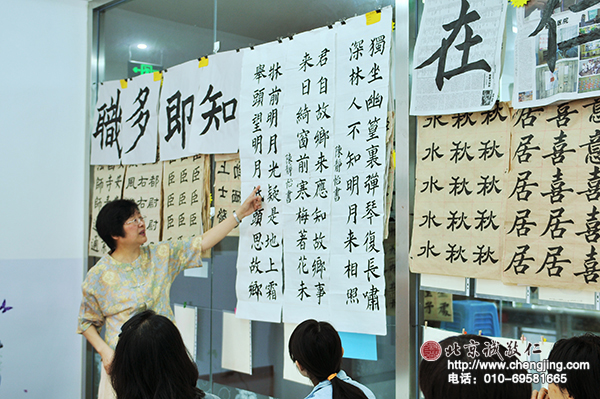 在
知
即
多
職
獨坐幽篁裏彈琴復長嘯
深林人不知明月來相照
陳靜怡書
君自故鄉來應知故鄉事
來日綺窗前寒梅著花未
陳靜怡書
牀前明月光疑是地上霜
舉頭望明月頭思故鄉
喜喜喜喜
居居居居
秋秋秋秋
秋秋秋秋
水水水水
臣臣臣
臣臣臣
北京誠敬仁
http://www.chengjing.com
电话：010-69581665